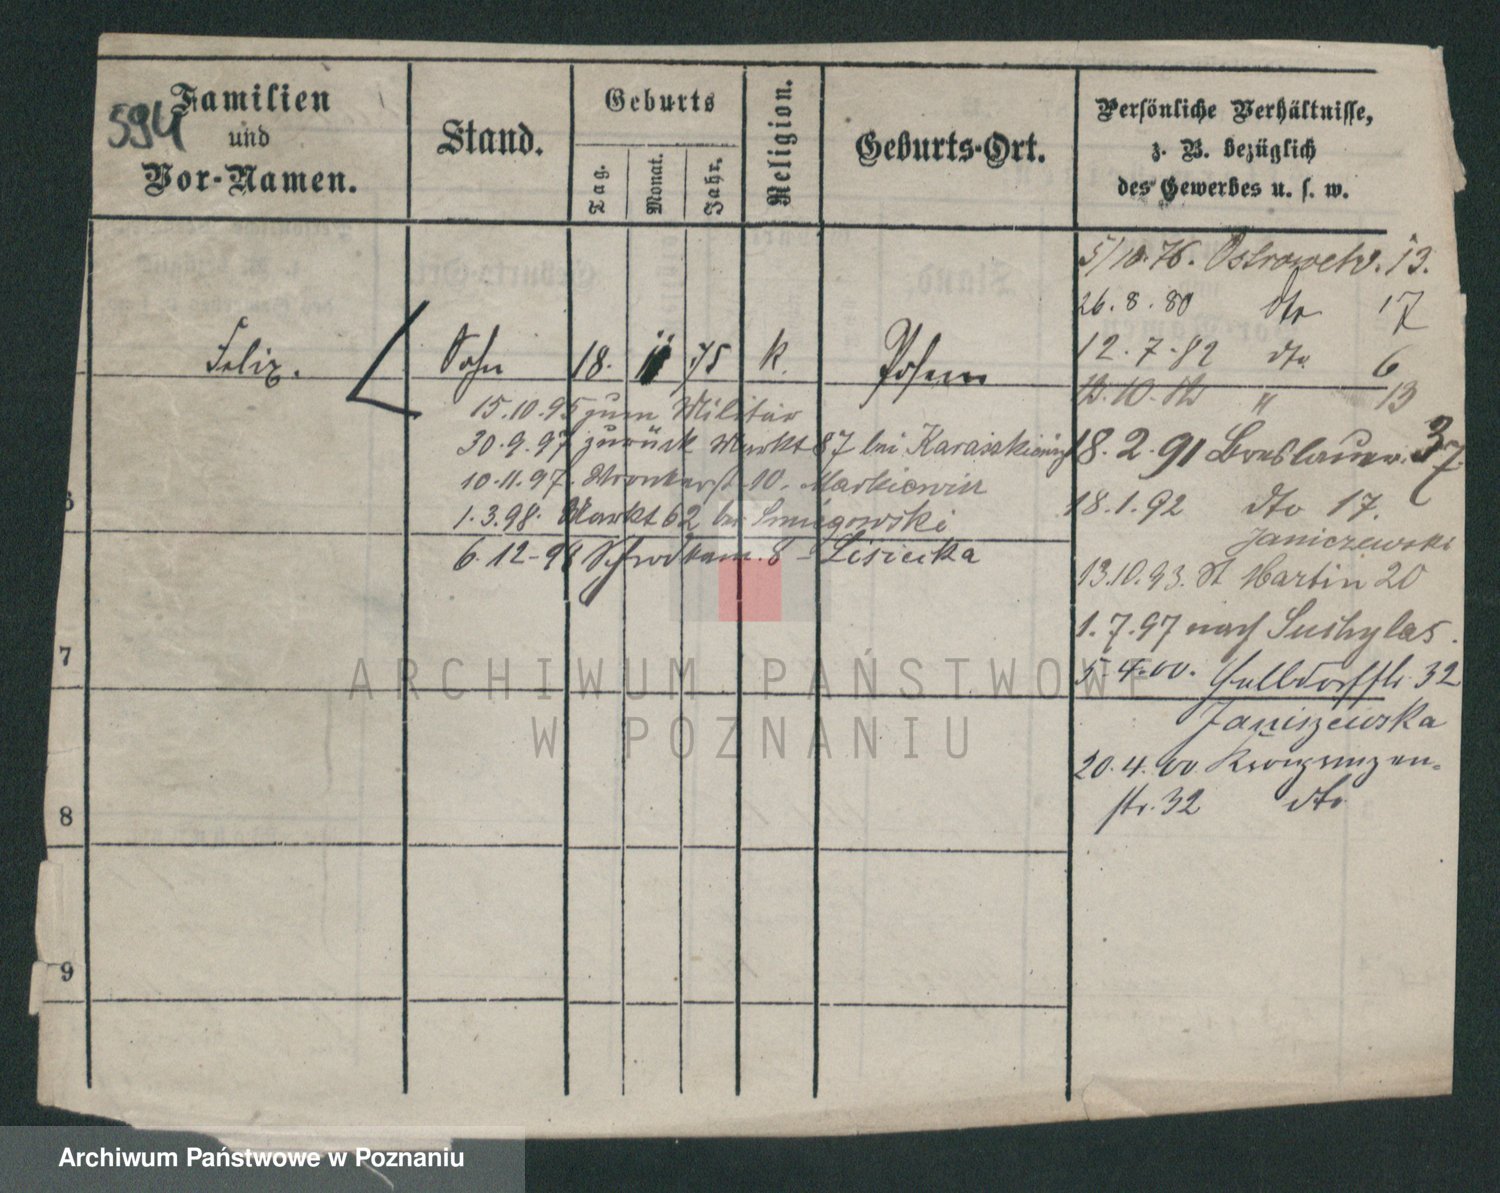 594
Familien
und
Vor-Namen.
Stand.
Geburts
Tag.
Monat.
Jahr.
Religion.
Geburts-Ort.
Persönliche Verhältnisse,
z. B. bezüglich
des Gewerbes u. s. w.
Felix.
Sohn
18. 11 75
k.
Posen
15.10.95 zum Militär
30.9.97 zurück Markt 87 bei
10.11.97. Wronkerst 10. Markiewicz
1.3.98. Markt 62 bei Smigowski
6.12-98 8 - Lisiecka
5/10.76. Ostrowek 13.
26.8.80 dto 17
12.7.82 dto. 6
12.10.82 " 13
18.2.91 Breslauer. 37
18.1.92 dto 17.
Janiczewski
13.10.93. St Martin 20
1.7.97 nach
5.4.00. 32
Janiszewska
20.4.00 Kronprinzen-
str. 32 dto
6
7
8
9
ARCHIWUM PAŃSTWOWE
W POZNANIU
Archiwum Państwowe w Poznaniu